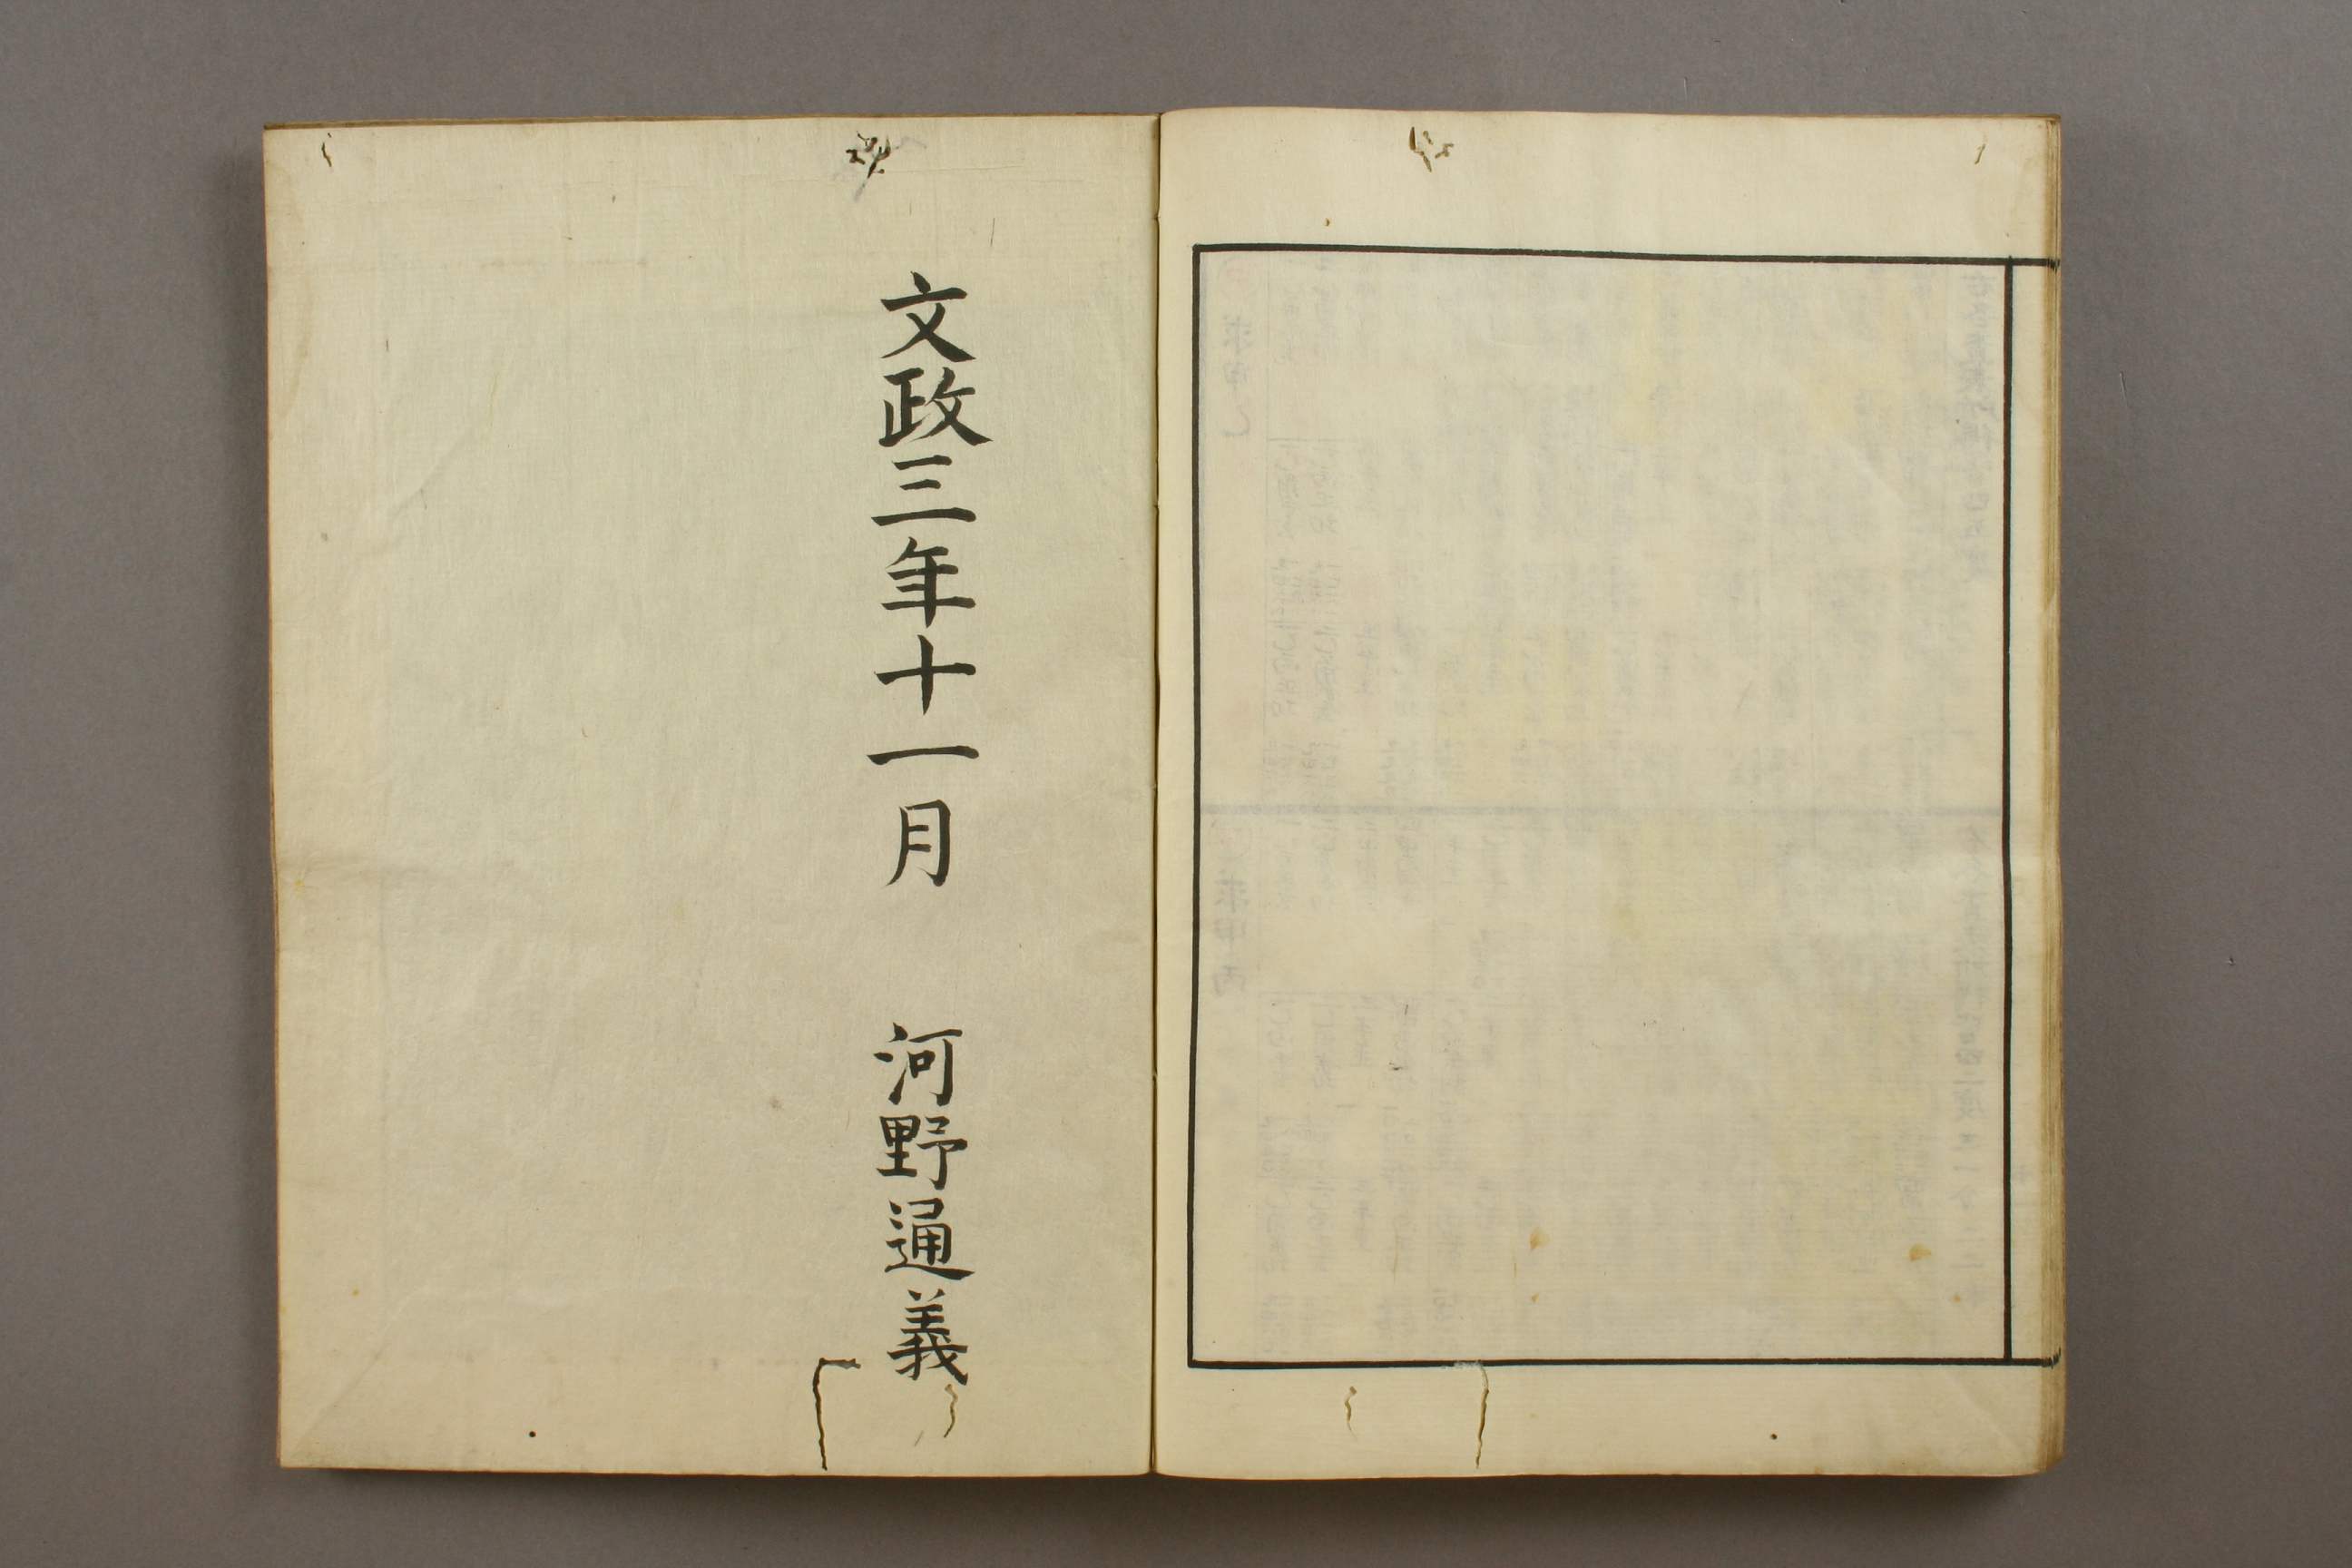 文政三年十一月　河野通義